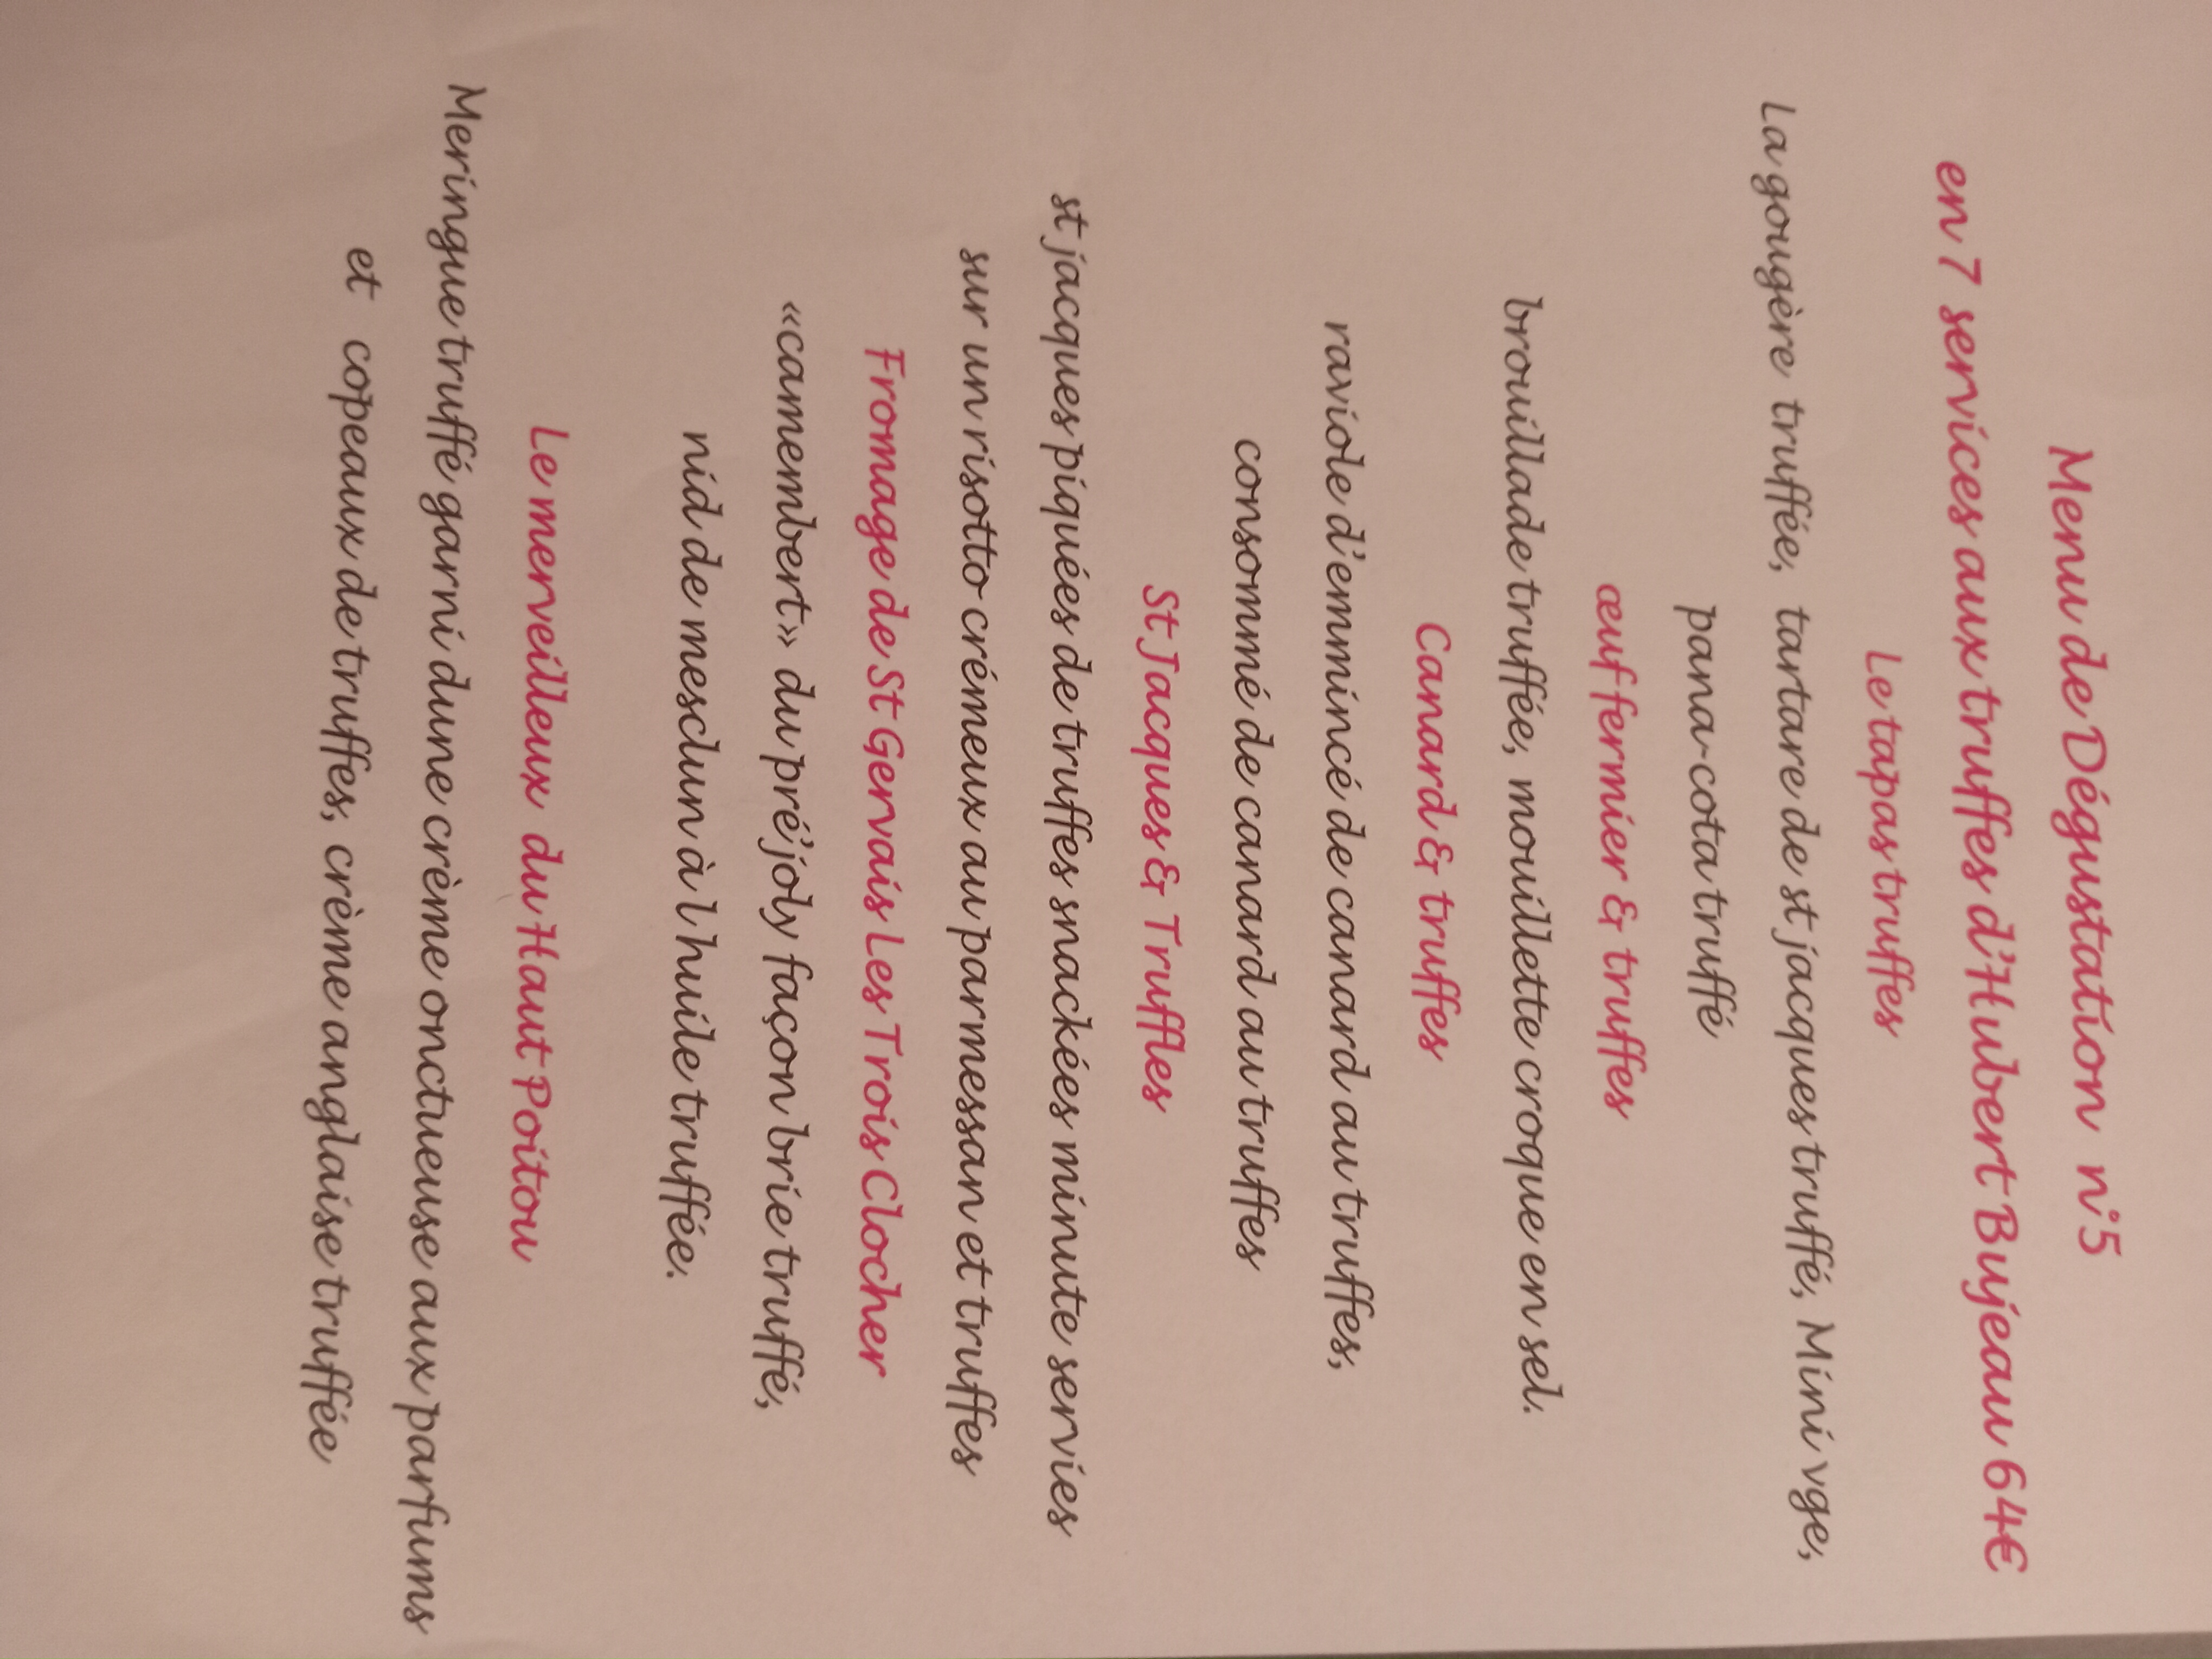 Menu de Dégustation n°5
en 7 services aux truffes d'Hubert Bujeau 64€
Le tapas truffes
La gougère truffée, tartare de st jacques truffé, Mini vge,
pana-cota truffé
œuf fermier & truffes
brouillade truffée, mouillette croque en sel.
Canard & truffes
raviole d'emmincé de canard au truffes,
consommé de canard au truffes
St Jacques & Truffles
st jacques piquées de truffes snackées minute servies
sur un risotto crémeux au parmessan et truffes
Fromage de St Gervais Les Trois Clocher
«camembert» du pré'joly façon brie truffé,
nid de mesclun à l huile truffée.
Le merveilleux du Haut Poitou
Meringue truffé garni dune crème onctueuse aux parfums
et copeaux de truffes, crème anglaise truffée